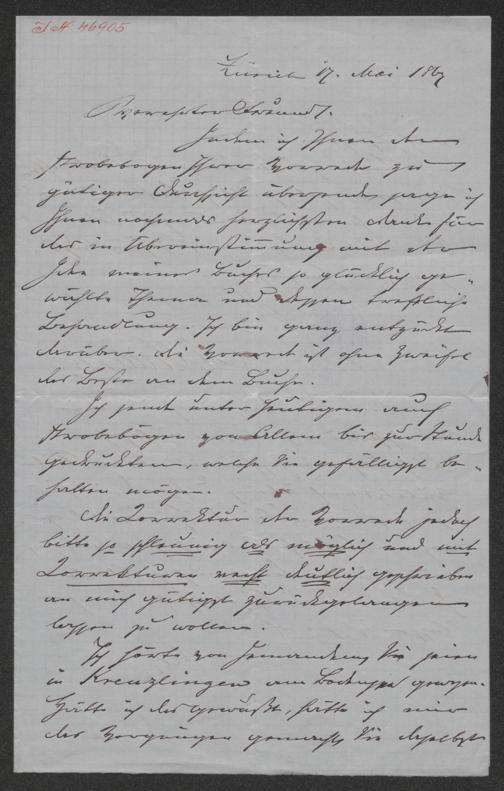 I.N. 46905
Zürich 17. Mai 1867
Verehrter Freund!
Indem ich Ihnen den
Probebogen Ihrer Vorrede zu
gütiger Durchsicht übersende, sage ich
Ihnen nochmals herzlichsten Dank für
das in Übereinstimmung mit der
Idee meines Buches so glücklich ge-
wählte Thema und dessen treffliche
Behandlung. Ich bin ganz entzückt
darüber. Die Vorrede ist ohne Zweifel
das Beste an dem Buche.
Ich sende unter Heutigem auch
Probebögen von Allem bis zur Stunde
Gedruckten, welche Sie gefälligst be-
halten mögen.
Die Correktur der Vorrede jedoch
bitte so schleunig als möglich und mit
Correkturen recht deutlich geschrieben
an mich gütigst zurückgelangen
lassen zu wollen.
Ich hörte von Jemandem, Sie seien
in Kreuzlingen am Bodensee gewesen.
Hätte ich das gewußt, hätte ich mir
das Vergnügen gemacht, Sie daselbst